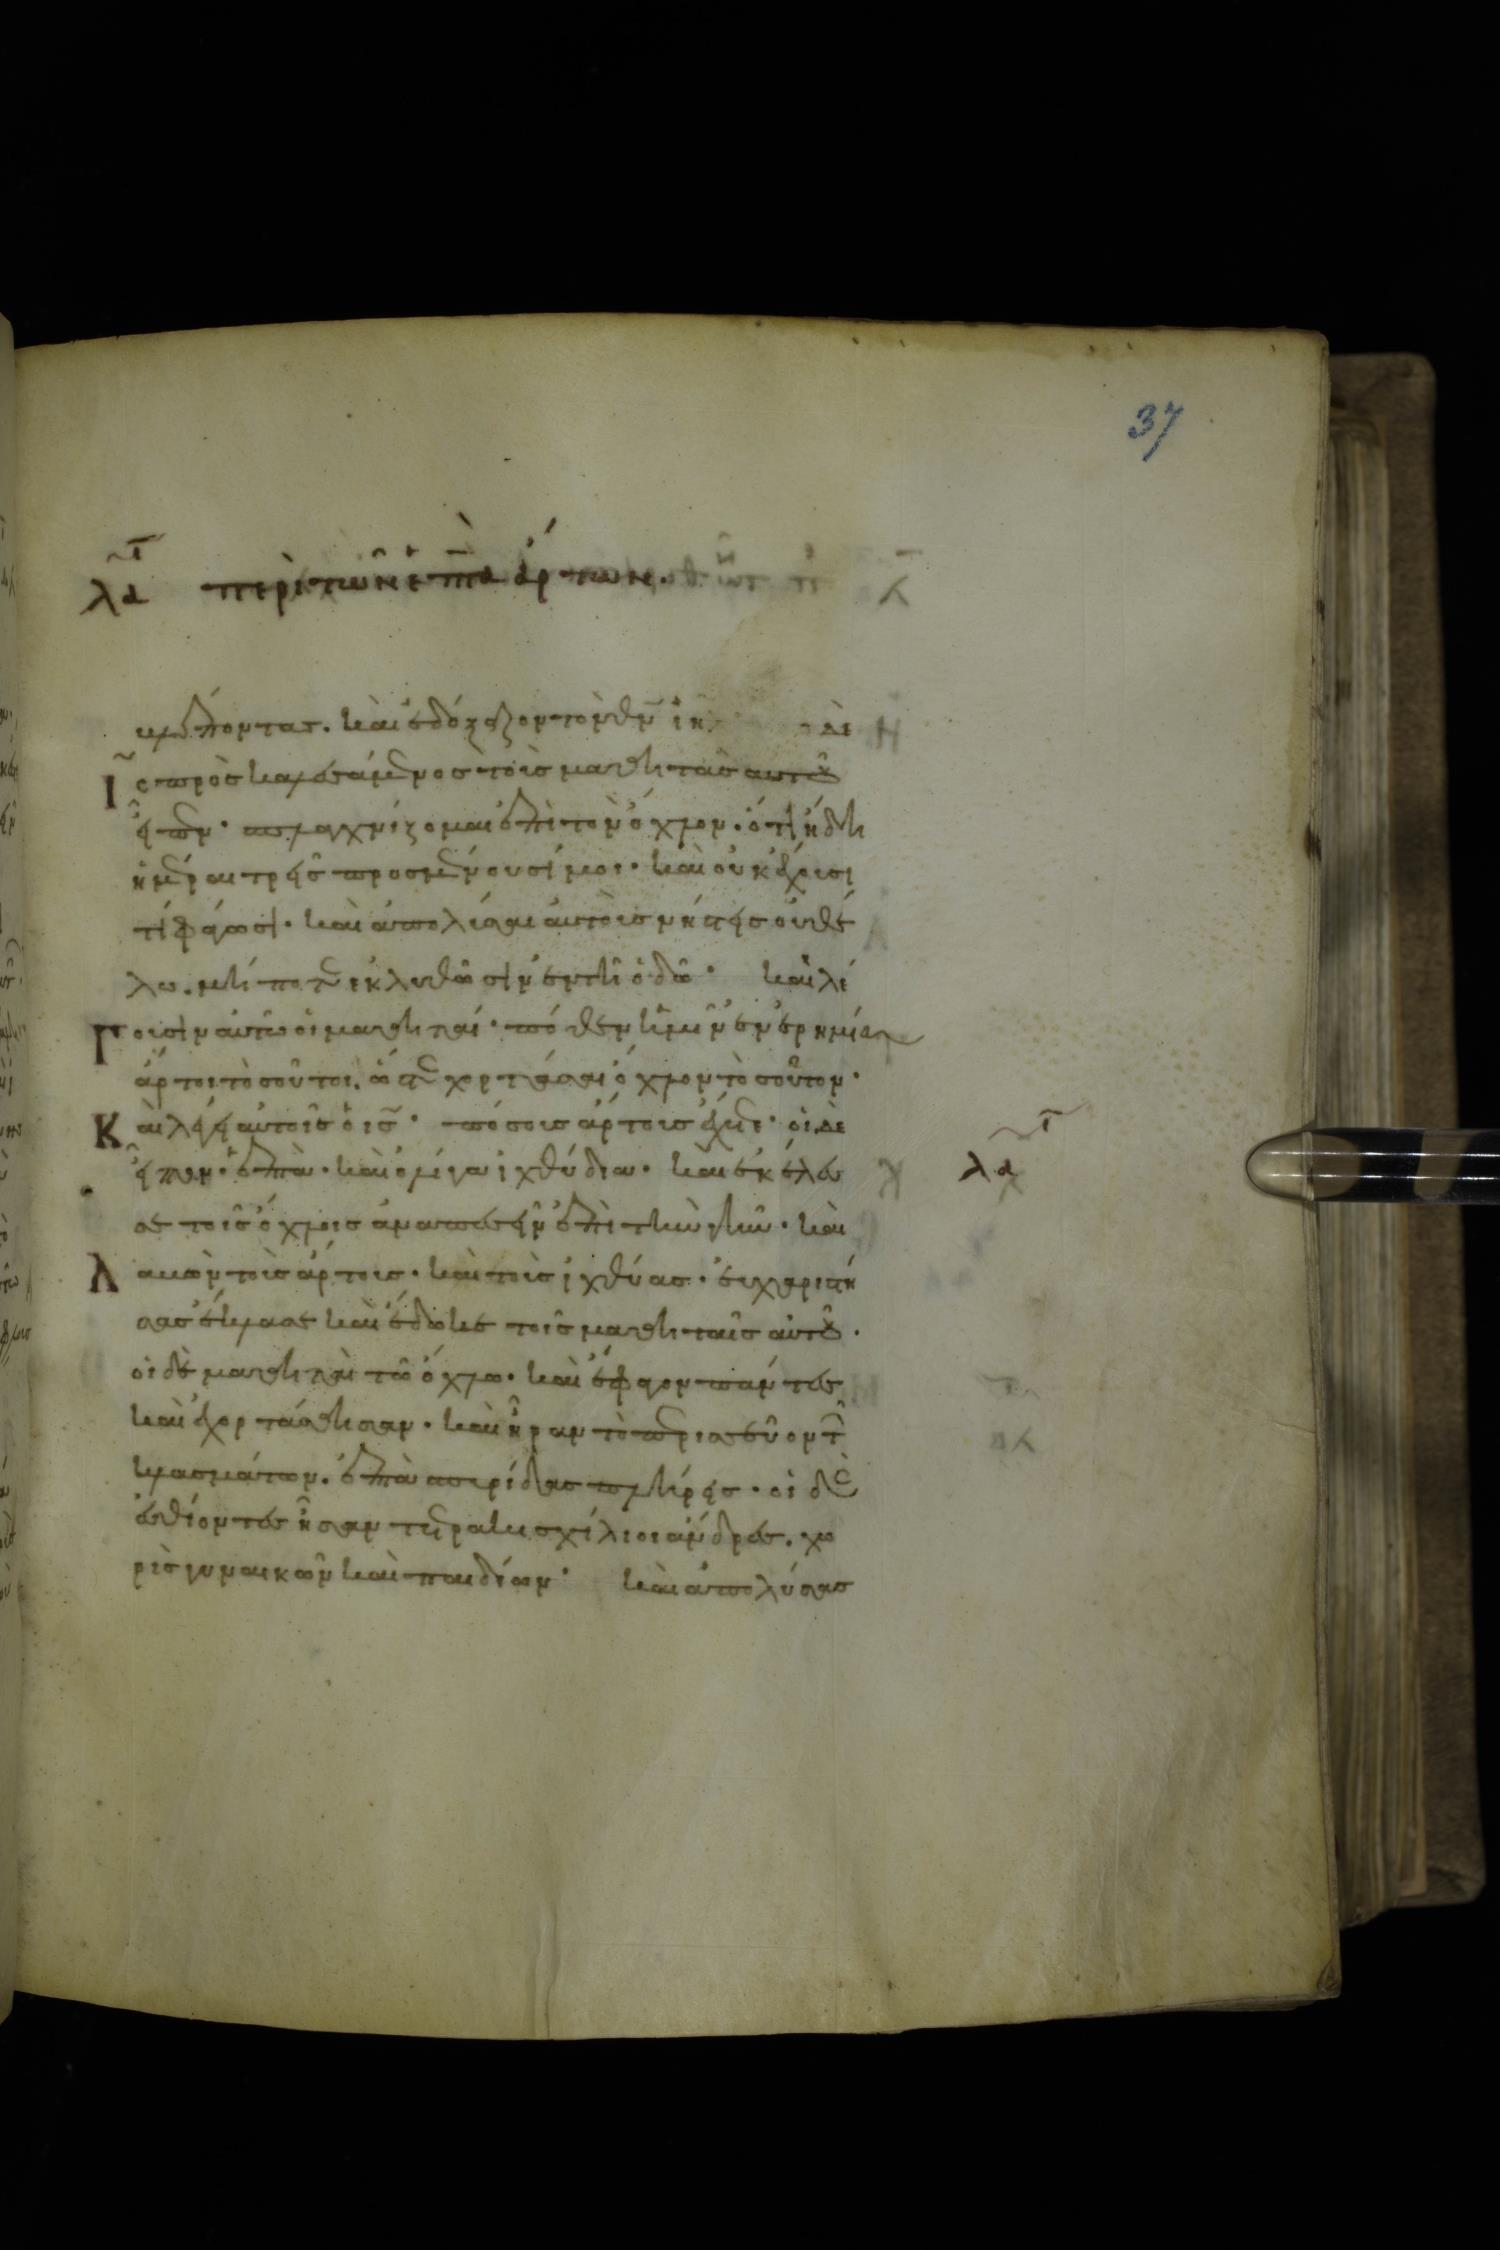 37
λα τ περὶ τῶν ἑπτὰ ἄρτων.
βλέποντας. καὶ ἐδόξαζον τὸν θν ιη̅λ ὁ δὲ
ις προσκαλεσάμενος τοὺς μαθητὰς αὐτοῦ
εἶπεν· σπλαγχνίζομαι ἐπὶ τὸν ὄχλον. ὅτι ἤδη
ἡμέραι τρεῖς προσμένουσί μοι. καὶ οὐκ ἔχουσι
τί φάγωσι. καὶ ἀπολῦσαι αὐτοὺς νήστεις οὐ θέ
λω. μήποτε ἐκλυθῶσιν ἐν τῇ ὁδῷ. καὶ λέ
Γουσιν αὐτῷ οἱ μαθηταί. πόθεν ἡμῖν ἐν ἐρημίᾳ
ἄρτοι τοσοῦτοι. ὥστε χορτάσαι ὄχλον τοσοῦτον.
Καὶ λέγει αὐτοῖς ὁ ις. πόσους ἄρτους ἔχετε. οἱ δὲ
εἶπον. ἑπτὰ. καὶ ὀλίγα ἰχθύδια. καὶ ἐκέλευ
σε τοῖς ὄχλοις ἀναπεσεῖν ἐπὶ τὴν γῆν. καὶ
Λαβὼν τοὺς ἄρτους. καὶ τοὺς ἰχθύας. εὐχαριστή
σας ἔκλασε καὶ ἔδωκε τοῖς μαθηταῖς αὐτοῦ.
οἱ δὲ μαθηταὶ τῷ ὄχλῳ. καὶ ἔφαγον πάντες
καὶ ἐχορτάσθησαν. καὶ ἦραν τὸ περισσεῦον τῶ
κλασμάτων. ἑπτὰ σπυρίδας πλήρεις. οἱ δὲ
ἐσθίοντες ἦσαν τετρακισχίλιοι ἄνδρες. χω
ρὶς γυναικῶν καὶ παιδίων. καὶ ἀπολύσας
λα τ